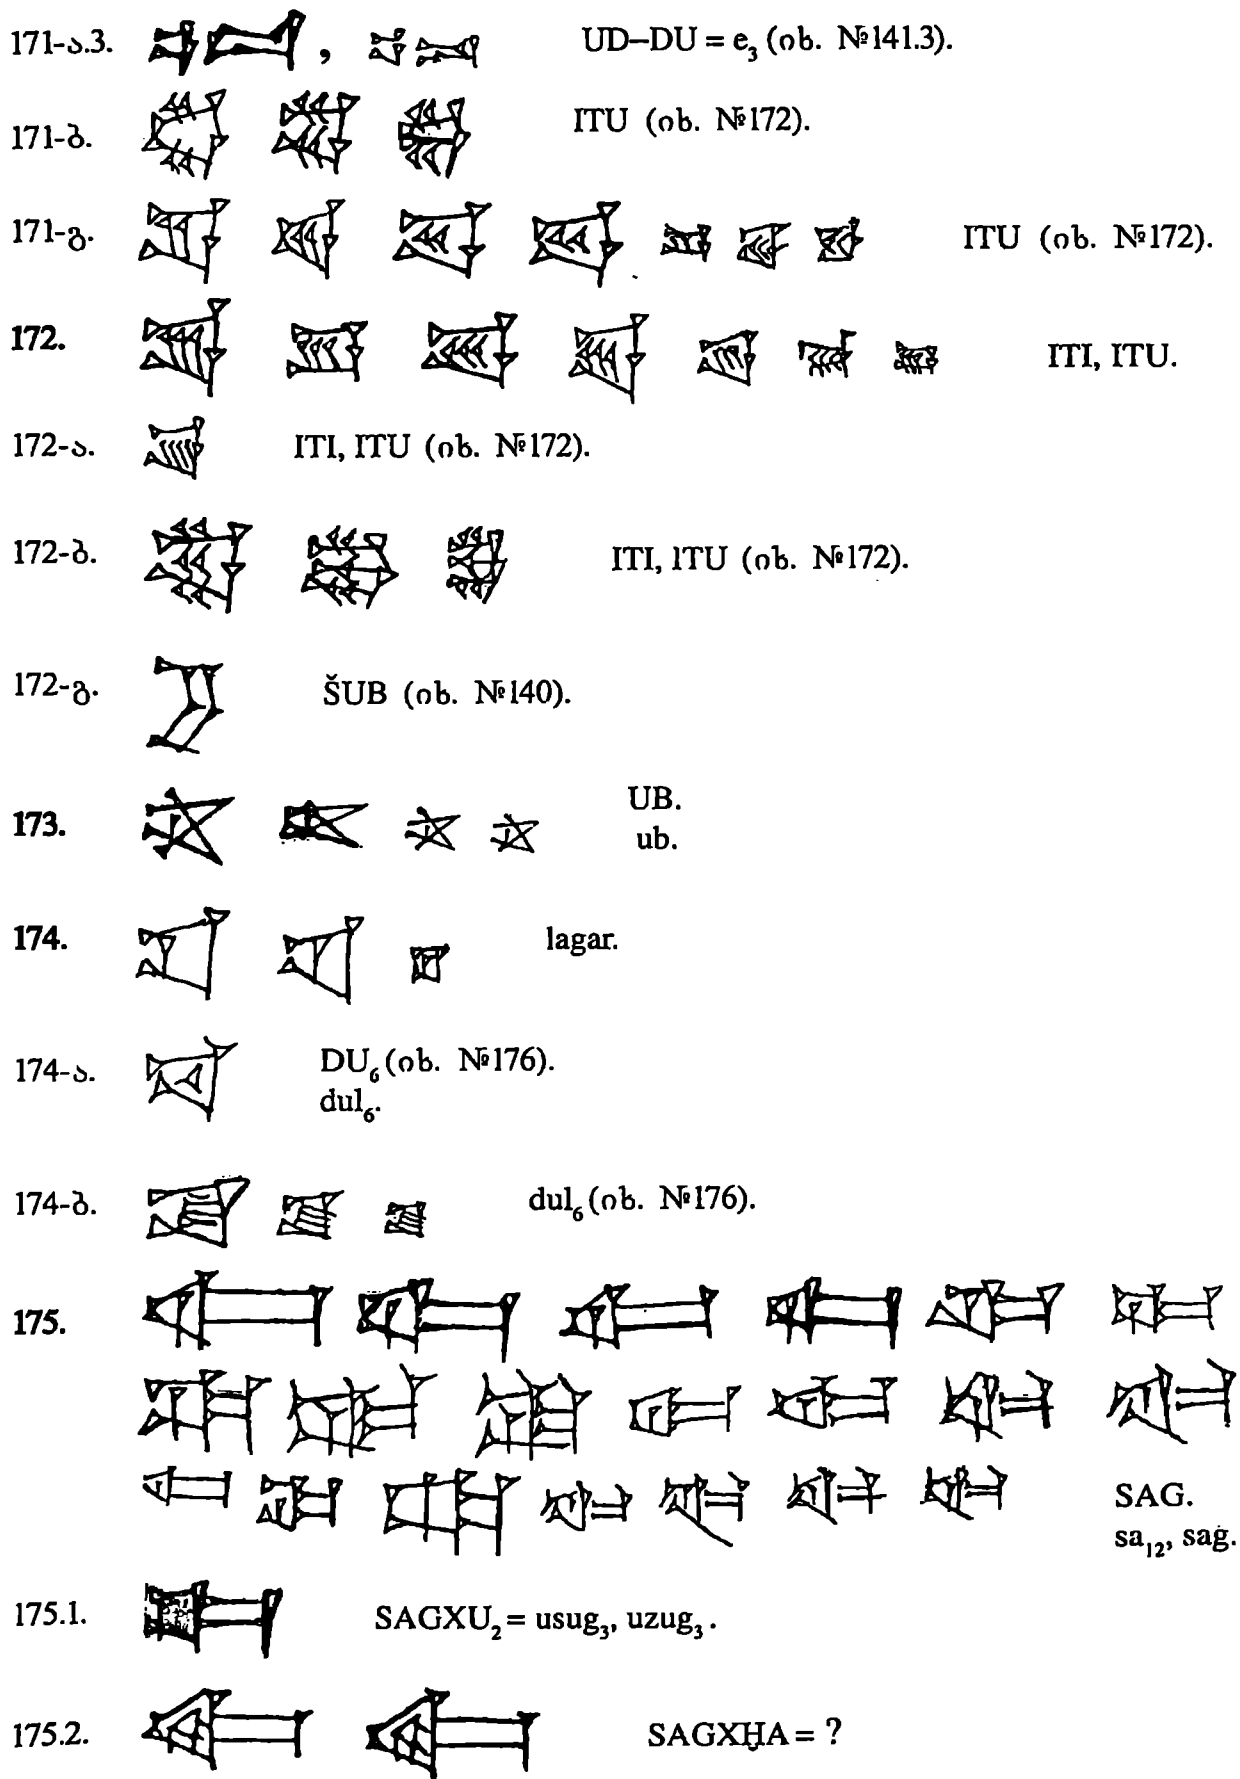 171-ა.3. , UD–DU = e₃ (იხ. №141.3).
171-ბ. ITU (იხ. №172).
171-გ. ITU (იხ. №172).
172. ITI, ITU.
172-ა. ITI, ITU (იხ. №172).
172-ბ. ITI, ITU (იხ. №172).
172-გ. ŠUB (იხ. №140).
173. UB.
ub.
174. lagar.
174-ა. DU₆ (იხ. №176).
dul₆.
174-ბ. dul₆ (იხ. №176).
175.
SAG.
sa₁₂, saġ.
175.1. SAGXU₂ = usug₃, uzug₃.
175.2. SAGXḪA = ?